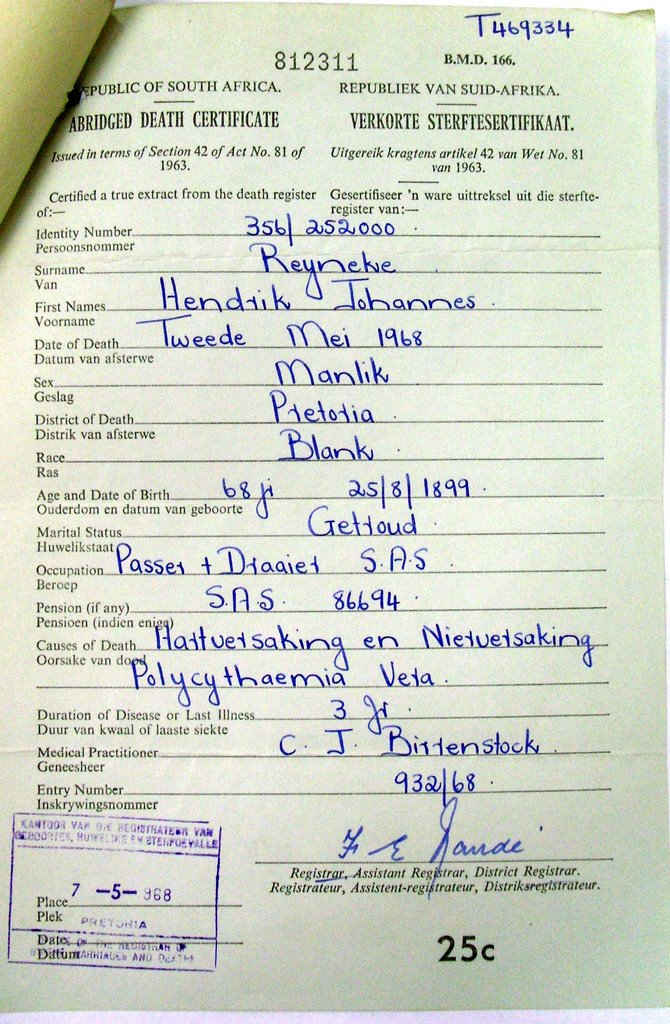 T469334
812311 B.M.D. 166.
EPUBLIC OF SOUTH AFRICA. REPUBLIEK VAN SUID-AFRIKA.
ABRIDGED DEATH CERTIFICATE VERKORTE STERFTESERTIFIKAAT.
Issued in terms of Section 42 of Act No. 81 of 1963. Uitgereik kragtens artikel 42 van Wet No. 81 van 1963.
Certified a true extract from the death register of:— Gesertifiseer 'n ware uittreksel uit die sterfte-register van:—
Identity Number 356/252000
Persoonsnommer
Surname Reyneke
Van
First Names Hendrik Johannes
Voorname
Date of Death Tweede Mei 1968
Datum van afsterwe
Sex Manlik
Geslag
District of Death Pretoria
Distrik van afsterwe
Race Blank
Ras
Age and Date of Birth 68 jr 25/8/1899
Ouderdom en datum van geboorte
Marital Status Getroud
Huwelikstaat
Occupation Passer + Draaier S.A.S.
Beroep
Pension (if any) S.A.S. 86694
Pensioen (indien enige)
Causes of Death Hartversaking en Nierversaking
Oorsake van dood Polycythaemia Vera
Duration of Disease or Last Illness 3 Jr
Duur van kwaal of laaste siekte
Medical Practitioner C. J. Birrenstock
Geneesheer
Entry Number 932/68
Inskrywingsnommer
KANTOOR VAN DIE REGISTRATEUR VAN
GEBOORTES, HUWELIKE EN STERFGEVALLE
Registrar, Assistant Registrar, District Registrar.
Registrateur, Assistent-registrateur, Distriksregistrateur.
7 -5- 968
Place
Plek
PRETORIA
Date OF THE REGISTRAR OF
Datum MARRIAGES AND DEATHS
25c